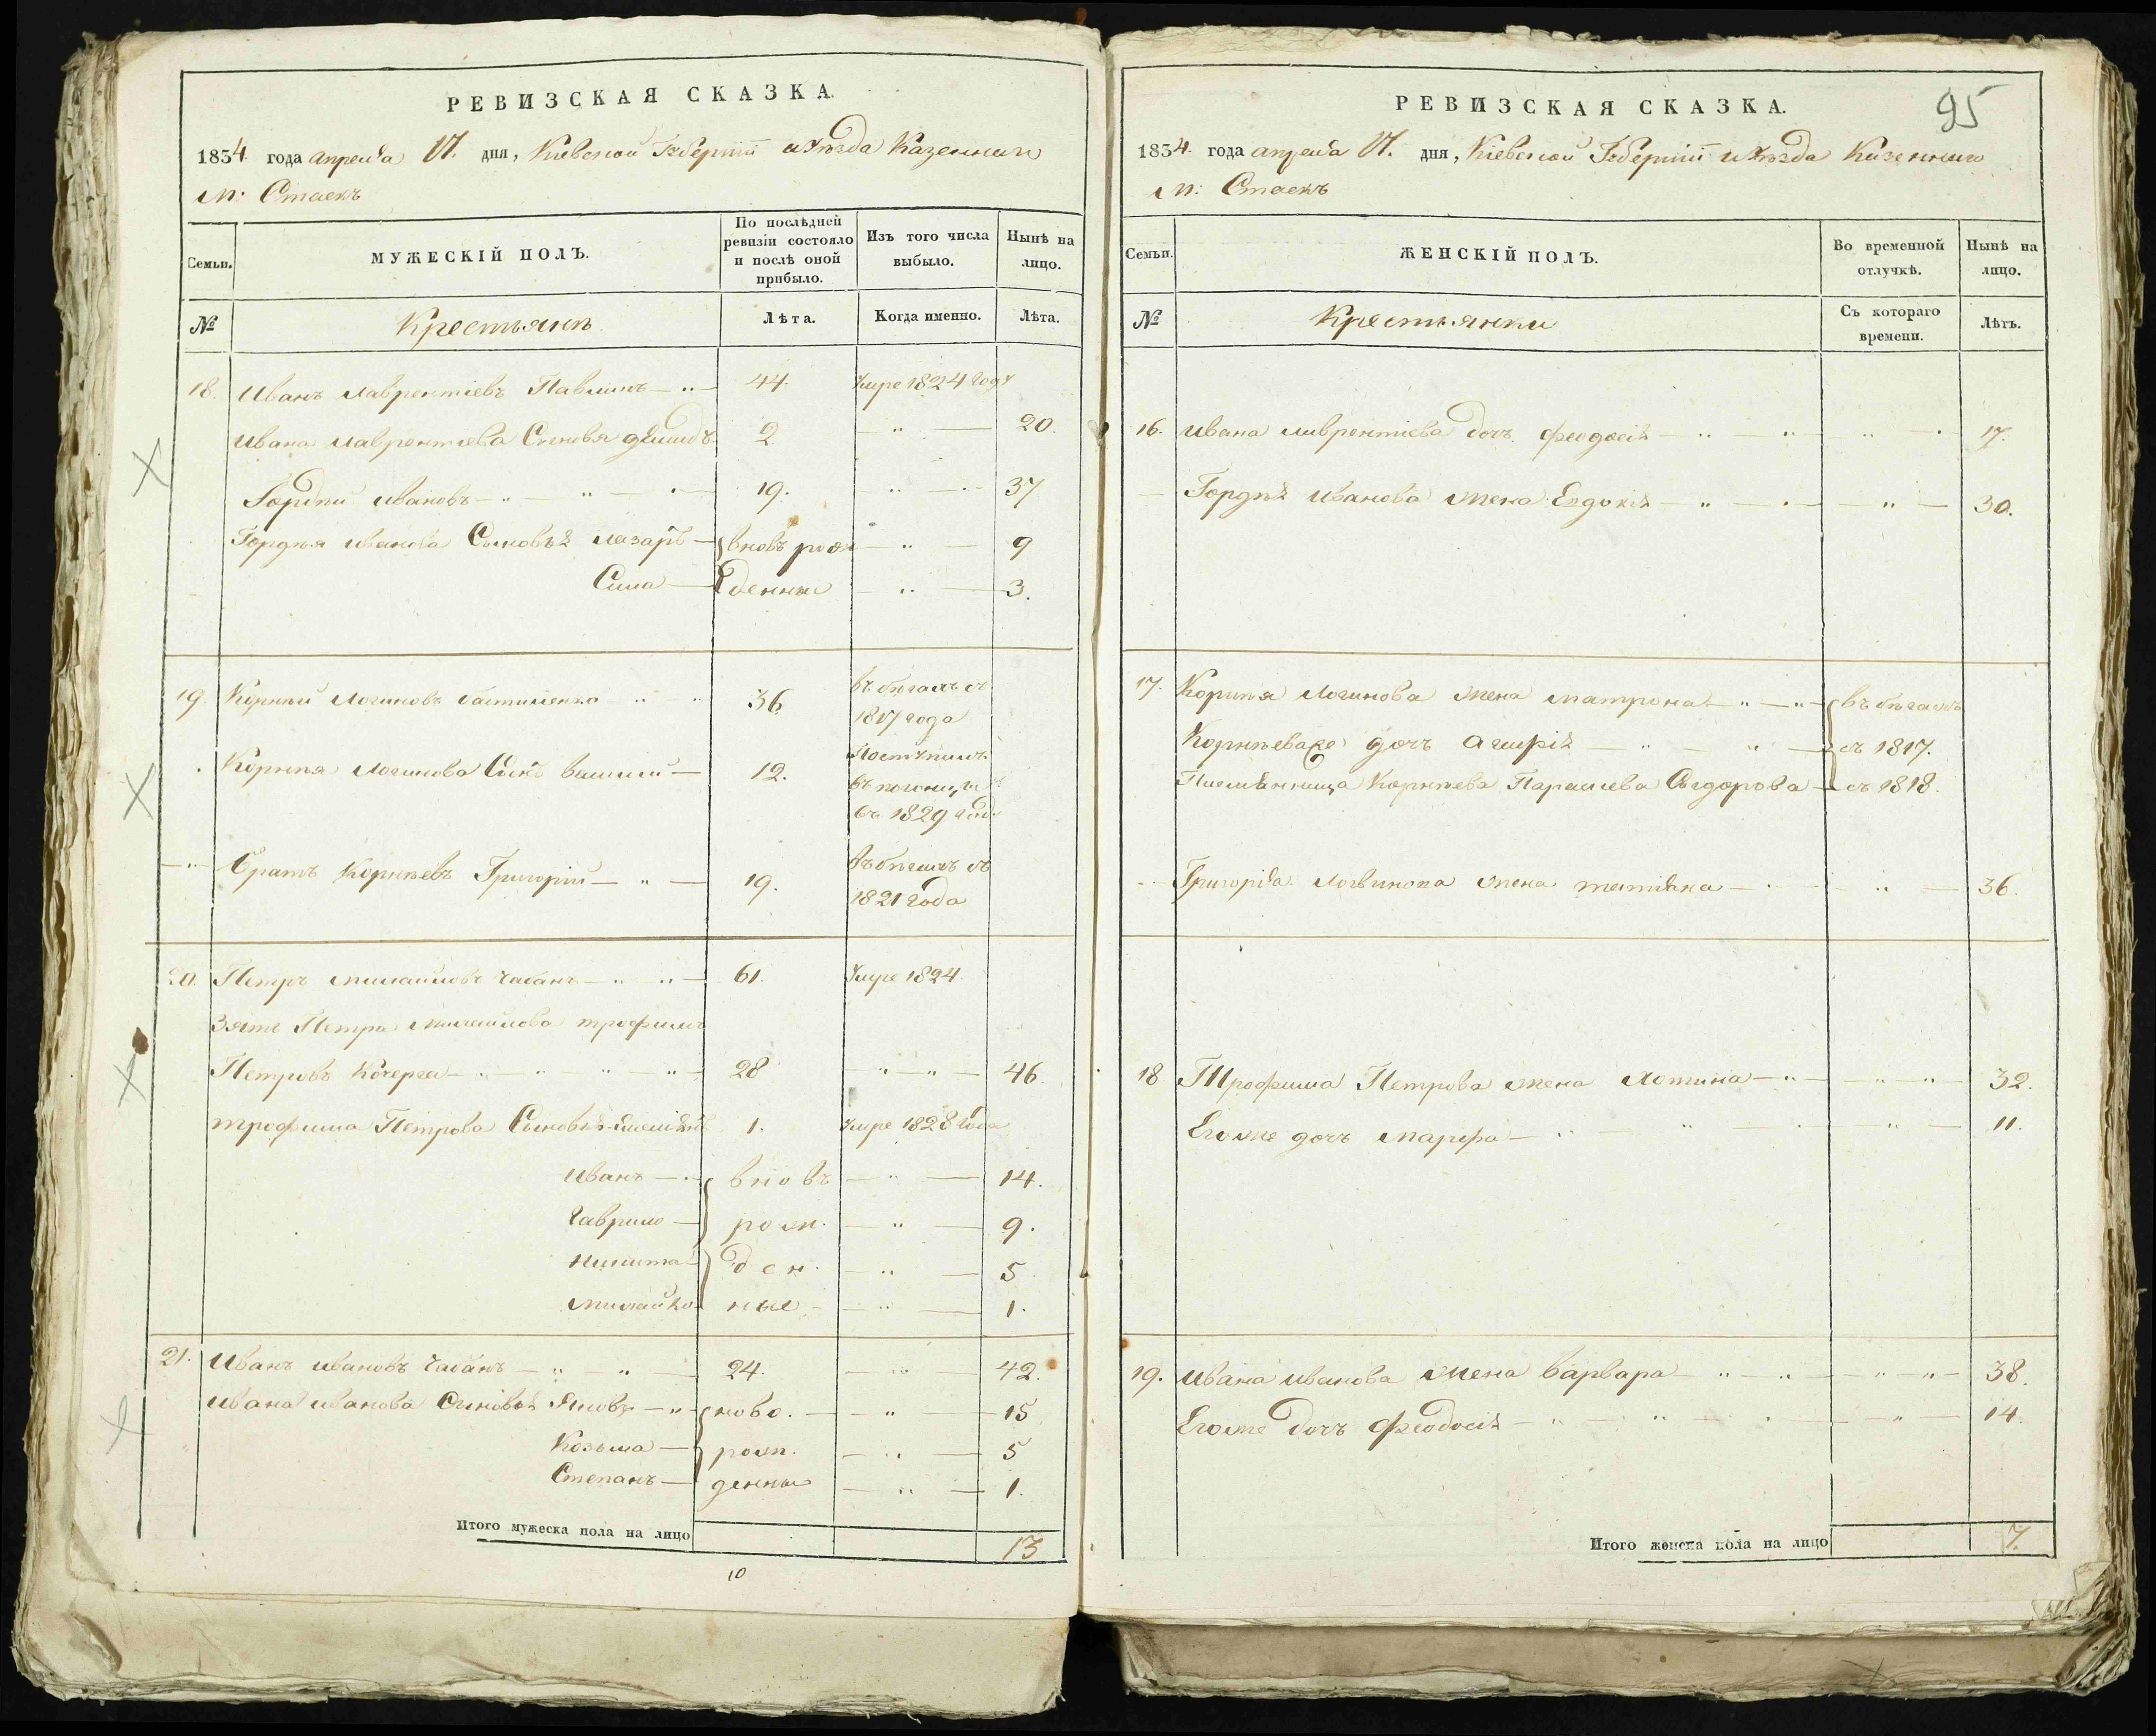 РЕВИЗСКАЯ СКАЗКА.
1834 года апреля 17. дня, Кіевской Губерніи и уѣзда Казеннаго
М: Стаекъ
Семьи.
МУЖЕСКІЙ ПОЛЪ.
По послѣдней ревизіи состояло и послѣ оной прибыло.
Изъ того числа выбыло.
Нынѣ на лицо.
№
Крестьянъ
Лѣта.
Когда именно.
Лѣта.
18. Иванъ Лаврентіевъ 44. Умре 1824 году
Ивана Лаврентіева Сыновья 2 20.
Гордій Ивановъ 19. 37
Гордѣя Иванова Сыновья Лазарь вновь рож 9
Сила денны 3.
19 Корнѣй Логиновъ 36 въ бѣгахъ съ
1817 года
Корнѣя Логинова Сынъ Василій 12. Поступилъ
въ
въ 1829 год
Братъ Корнѣевъ Григорій 19. въ бѣгахъ съ
1821 года
20. Петръ Михайловъ Чабанъ 61. Умре 1824
Зять Петра Михайлова Трофимъ
Петровъ Кочерга 28 46.
Трофима Петрова Сыновья 1. Умре 1828 года
Иванъ вновь 14.
Гаврило рож 9.
Никита ден 5
Михайло ные 1.
21. Иванъ Ивановъ Чабанъ 24. 42.
Ивана Иванова Сыновья Яковъ ново. 15
Козьма рож. 5
Степанъ денны 1.
Итого мужеска пола на лицо 13
10
95
РЕВИЗСКАЯ СКАЗКА.
1834 года апреля 17. дня, Кіевской Губерніи и уѣзда Казеннаго
М: Стаекъ
Семьи.
ЖЕНСКІЙ ПОЛЪ.
Во временной отлучкѣ.
Нынѣ на лицо.
№
Крестьянки
Съ котораго времени.
Лѣтъ.
16. Ивана Лаврентіева дочь Феодосія 17.
Гордѣя Иванова жена Евдокія 30.
17. Корнѣя Логинова жена Матрона въ бѣгахъ
Корнѣева дочь съ 1817.
Племянница Корнѣева Параскева Сидорова съ 1818.
Григорія Логвинова жена Татіяна 36.
18 Трофима Петрова жена 32.
Егоже дочь Марфа 11.
19. Ивана Иванова жена Варвара 38.
Егоже дочь Феодосія 14.
Итого женска пола на лицо 7.